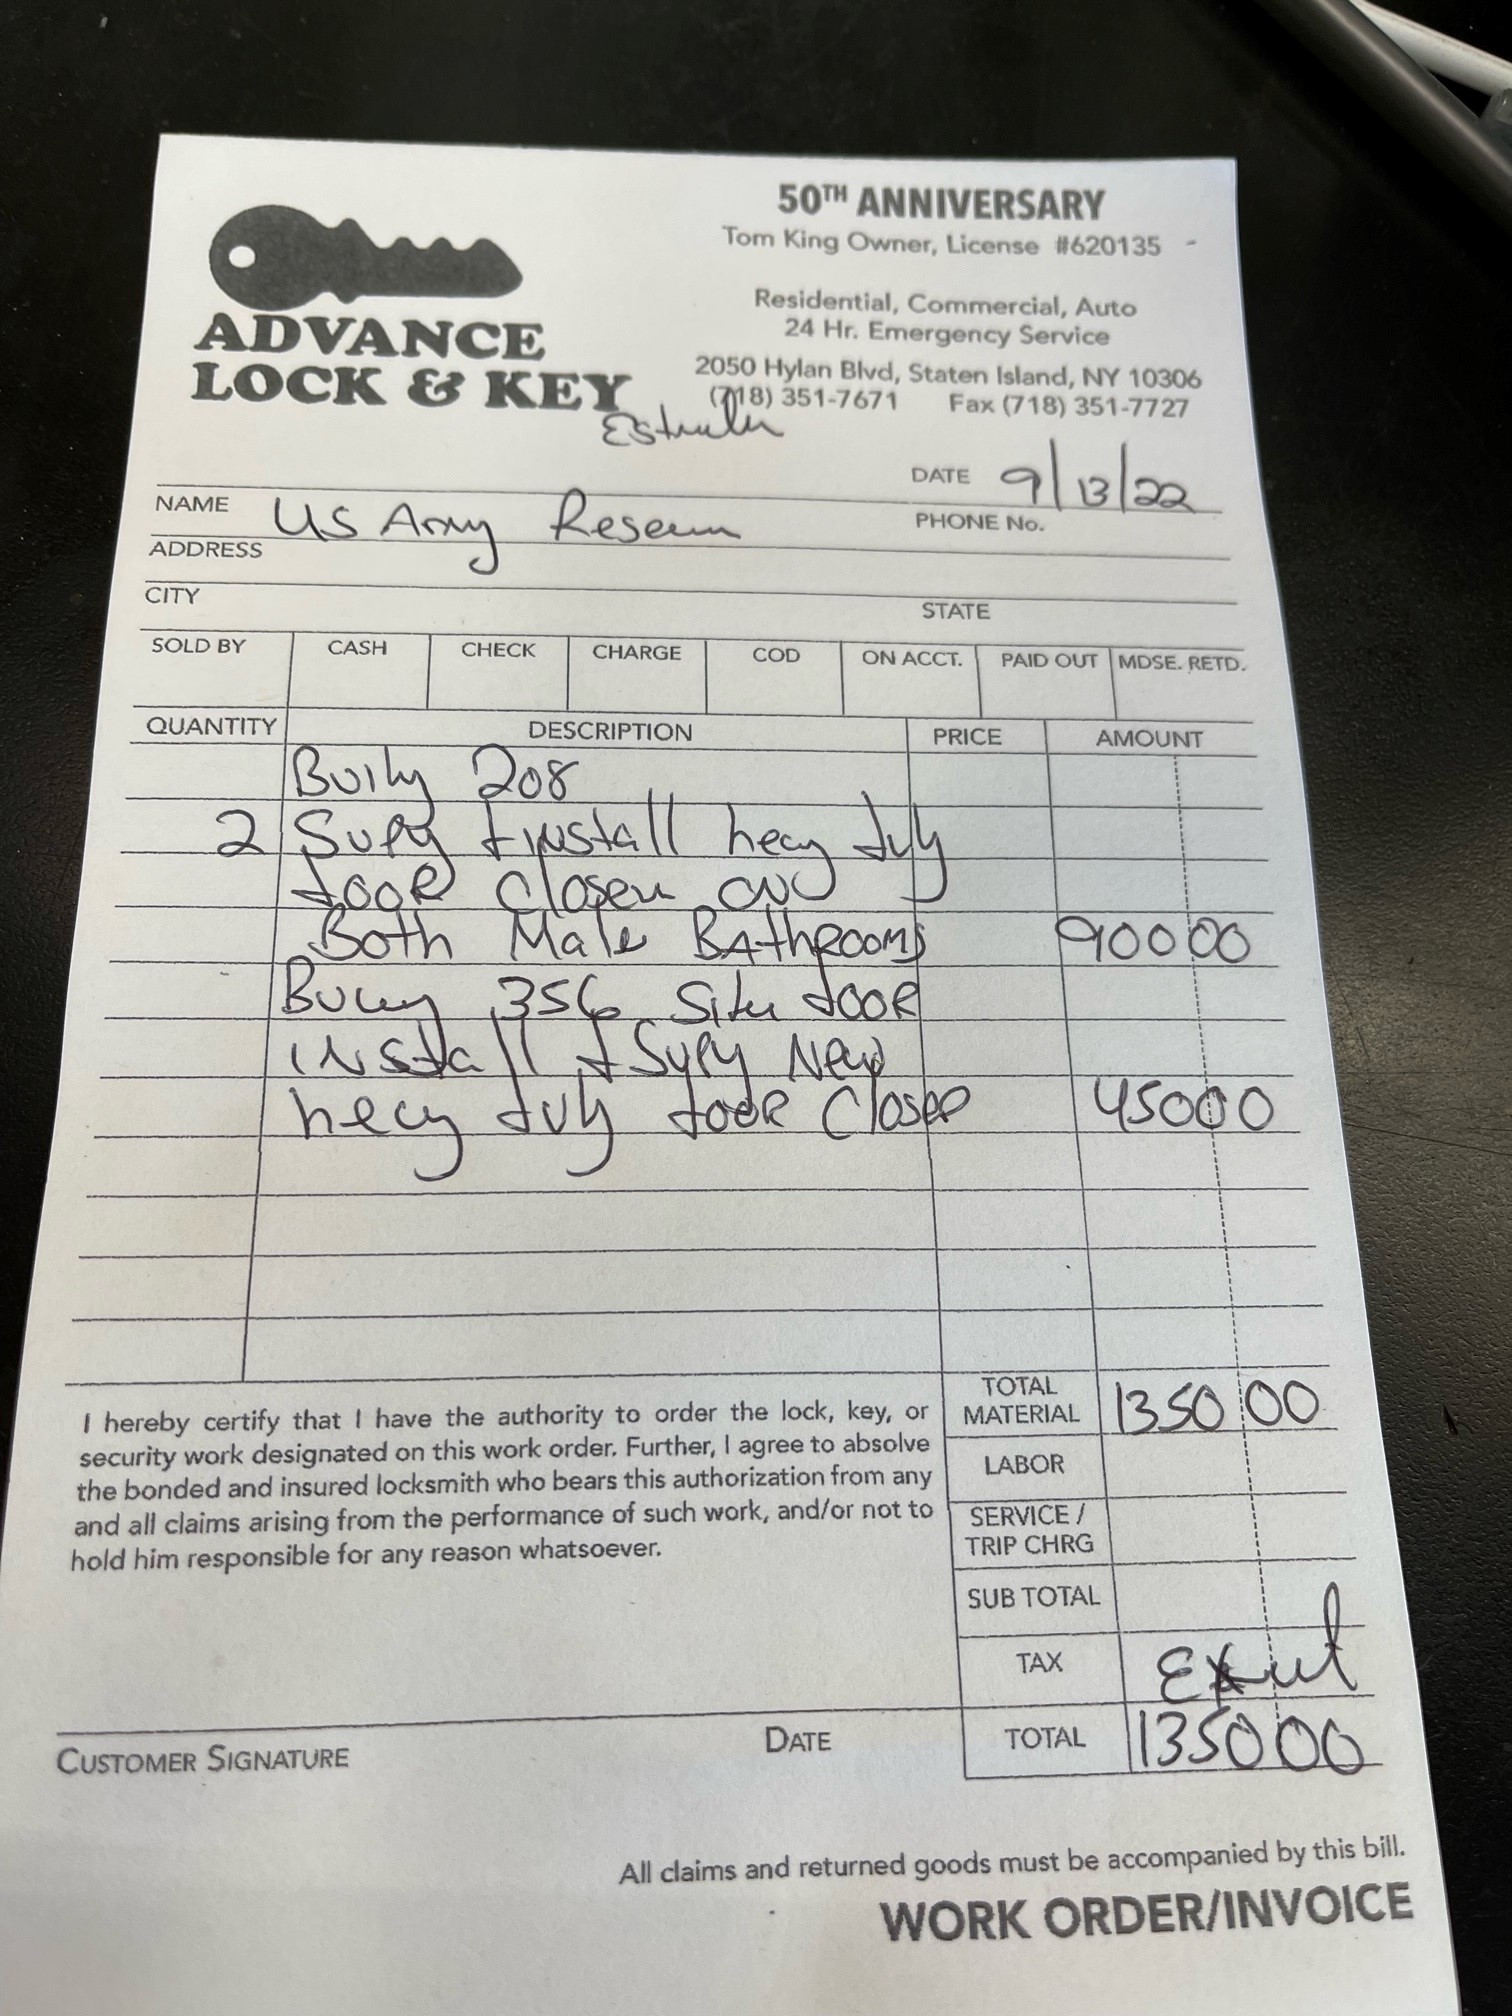 50TH ANNIVERSARY
Tom King Owner, License #620135
ADVANCE
LOCK & KEY
Residential, Commercial, Auto
24 Hr. Emergency Service
2050 Hylan Blvd, Staten Island, NY 10306
(718) 351-7671 Fax (718) 351-7727
DATE 9/13/22
NAME US Army
PHONE No.
ADDRESS
CITY STATE
SOLD BY CASH CHECK CHARGE COD ON ACCT. PAID OUT MDSE. RETD.
QUANTITY DESCRIPTION PRICE AMOUNT
208
2 install
DOOR Closer
Both Male BATHROOMS 900 00
356 DOOR
INSTALL New
DOOR Closer 450 00
TOTAL MATERIAL 1350 00
I hereby certify that I have the authority to order the lock, key, or
security work designated on this work order. Further, I agree to absolve
the bonded and insured locksmith who bears this authorization from any
and all claims arising from the performance of such work, and/or not to
hold him responsible for any reason whatsoever.
LABOR
SERVICE / TRIP CHRG
SUB TOTAL
TAX
TOTAL 1350 00
CUSTOMER SIGNATURE DATE
All claims and returned goods must be accompanied by this bill.
WORK ORDER/INVOICE